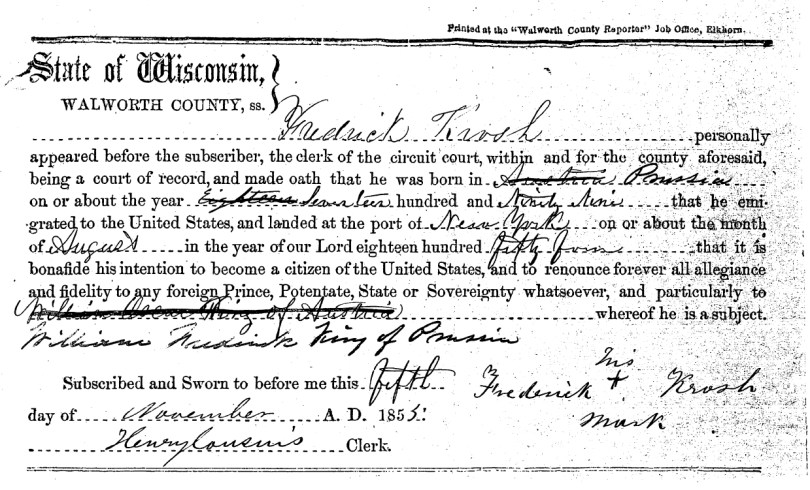 Printed at the "Walworth County Reporter" Job Office, Elkhorn.
State of Wisconsin,
WALWORTH COUNTY, ss.
Fredrick Krosh personally
appeared before the subscriber, the clerk of the circuit court, within and for the county aforesaid,
being a court of record, and made oath that he was born in Austria Prussia
on or about the year Eighteen Seventeen hundred and Ninety Nine that he emi-
grated to the United States, and landed at the port of New York on or about the month
of August in the year of our Lord eighteen hundred fifty four that it is
bonafide his intention to become a citizen of the United States, and to renounce forever all allegiance
and fidelity to any foreign Prince, Potentate, State or Sovereignty whatsoever, and particularly to
William King of Austria whereof he is a subject.
William Fredrick King of Prussia
Subscribed and Sworn to before me this fifth
day of November A. D. 1855.
Henry Cousins Clerk.
his
Frederick + Krosh
mark